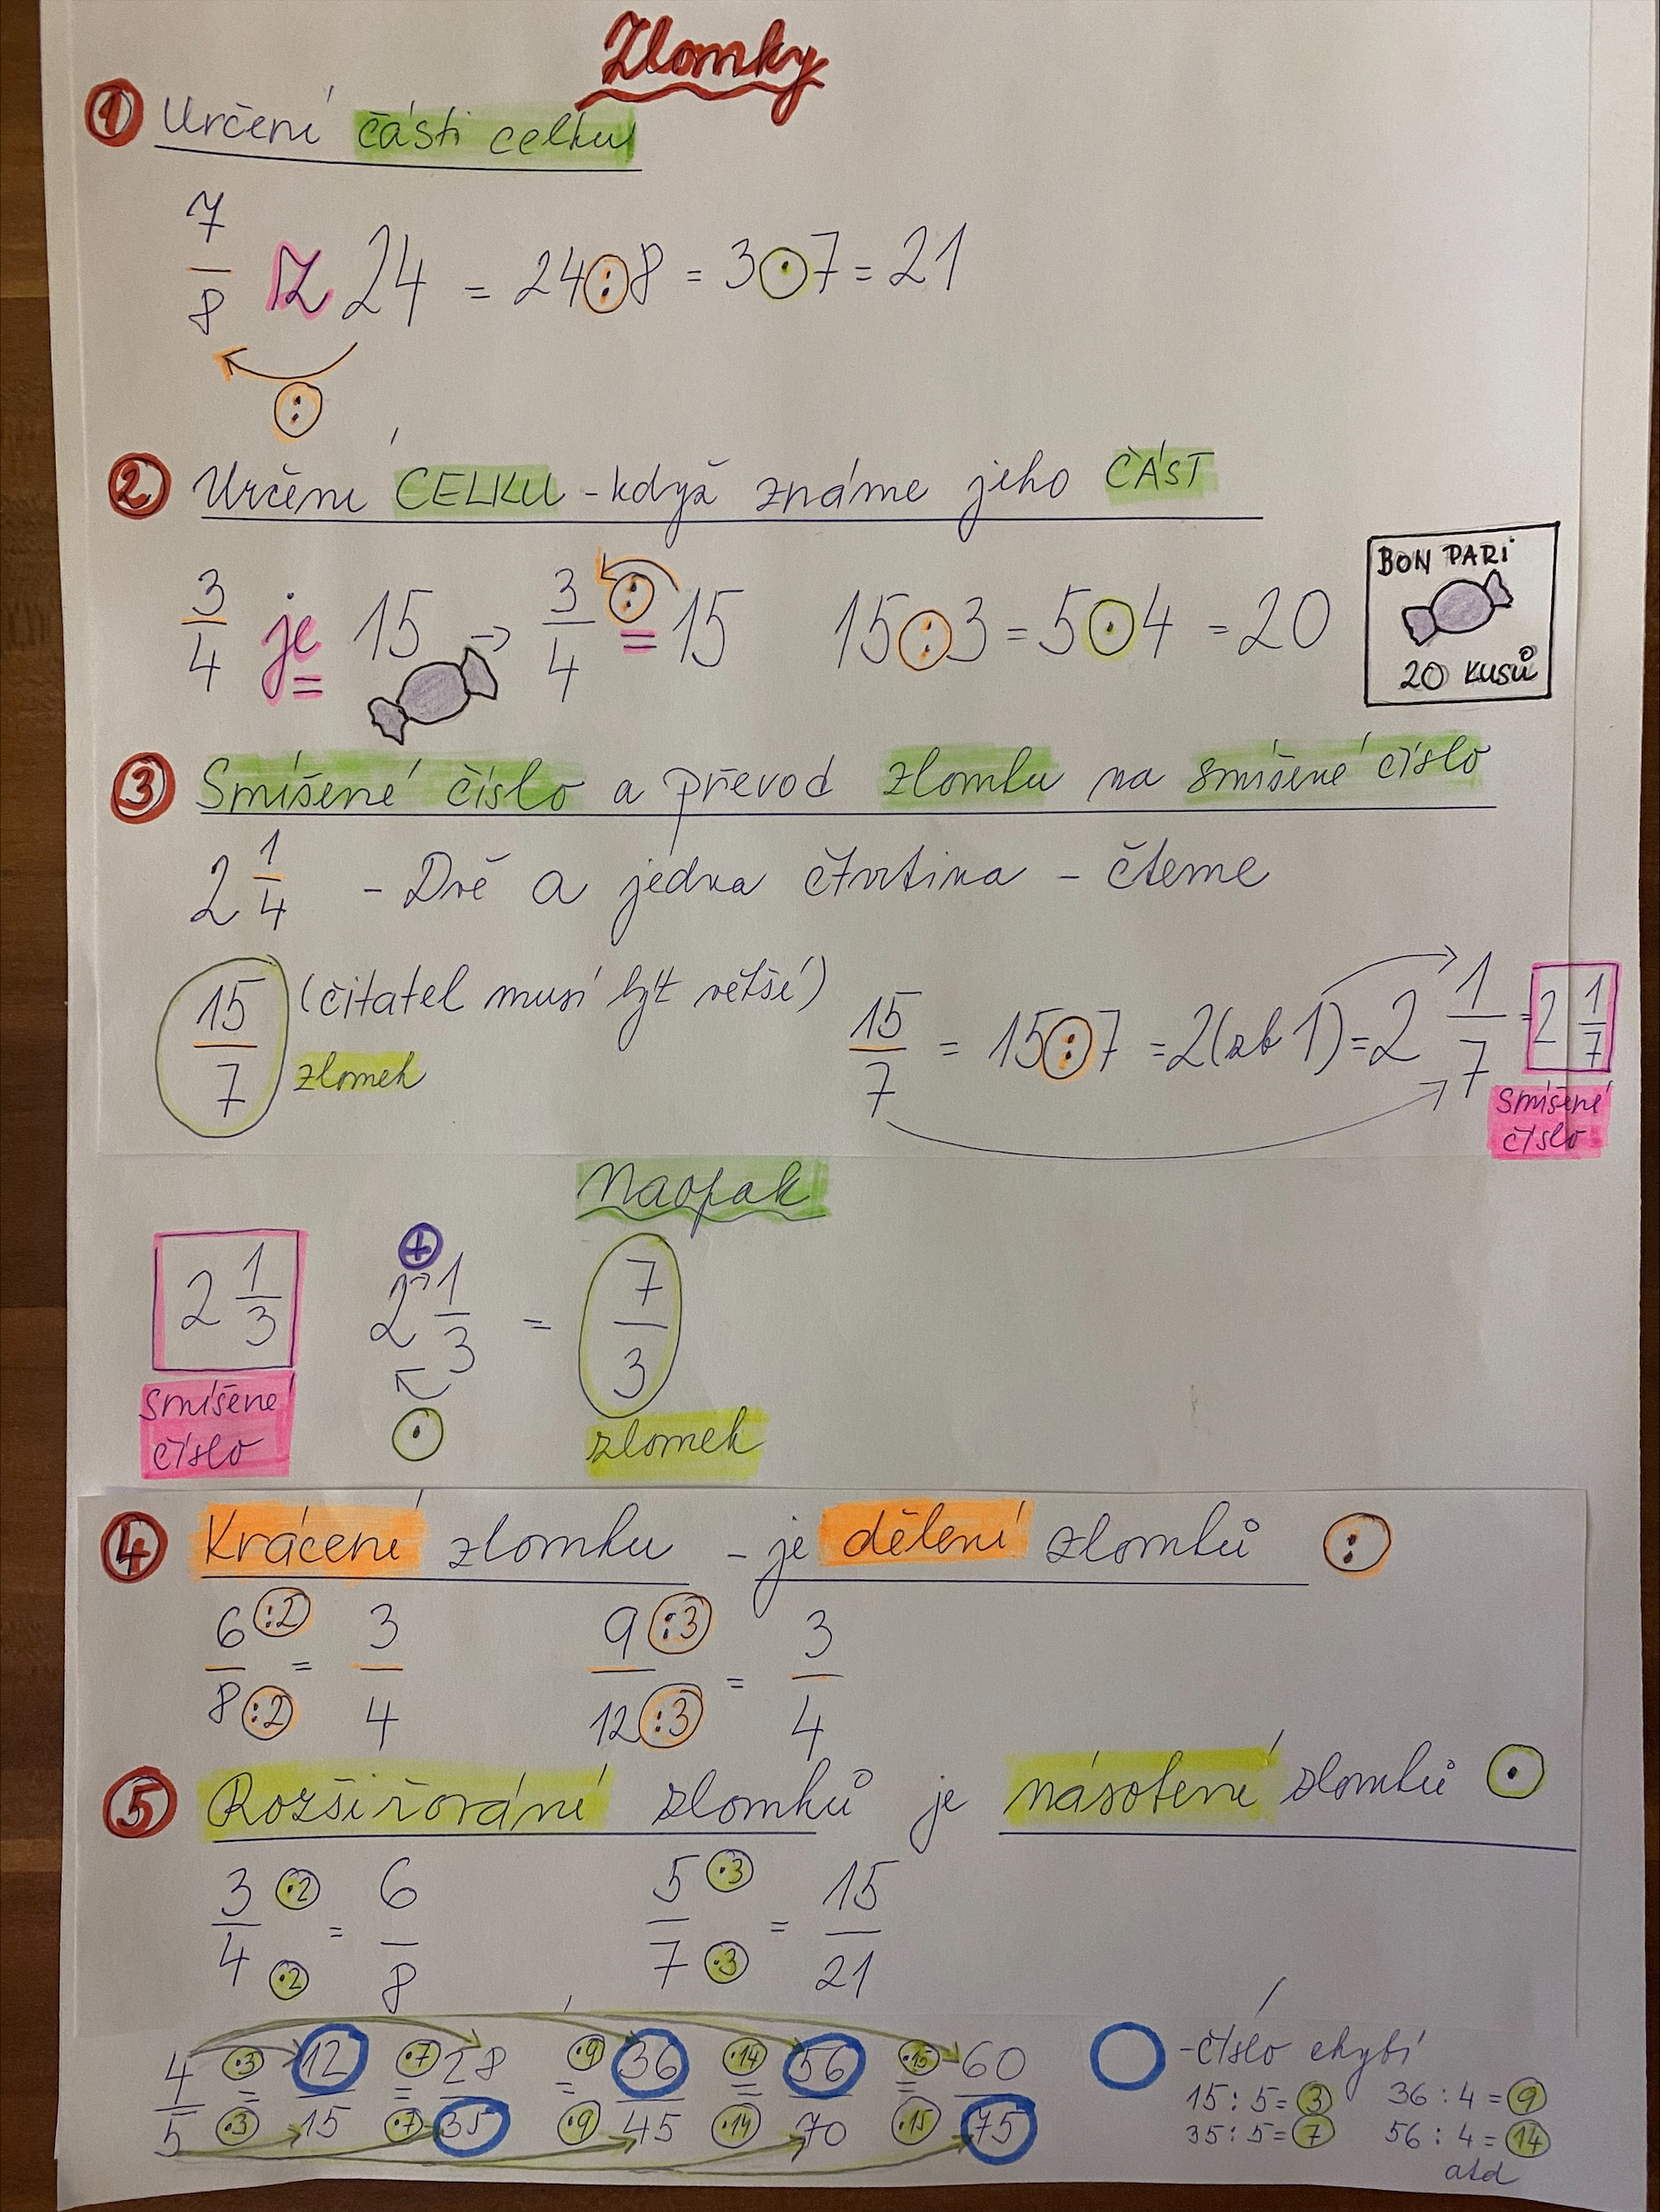 Zlomky
1 Určení části celku
7/8 z 24 = 24 : 8 = 3 · 7 = 21
:
2 Určení CELKU - když známe jeho ČÁST
3/4 je 15 → 3/4 : = 15 15 : 3 = 5 · 4 = 20
BON PARI
20 KUSŮ
3 Smíšené číslo a převod zlomku na smíšené číslo
2 1/4 - Dvě a jedna čtvrtina - čteme
15/7 (čitatel musí být větší)
zlomek
15/7 = 15 : 7 = 2 (zb 1) = 2 1/7 = 2 1/7
smíšené
číslo
Naopak
2 1/3 + 2 1/3 = 7/3
·
smíšené
číslo
zlomek
4 Krácení zlomku - je dělení zlomků :
6 :2 / 8 :2 = 3/4 9 :3 / 12 :3 = 3/4
5 Rozšiřování zlomků je násobení zlomků ·
3 ·2 / 4 ·2 = 6/8 5 ·3 / 7 ·3 = 15/21
4/5 ·3 = ·3 12/15 ·7 = ·7 28/35 ·9 = ·9 36/45 ·14 = ·14 56/70 ·15 = ·15 60/75
- číslo chybí
15 : 5 = 3 36 : 4 = 9
35 : 5 = 7 56 : 4 = 14
atd